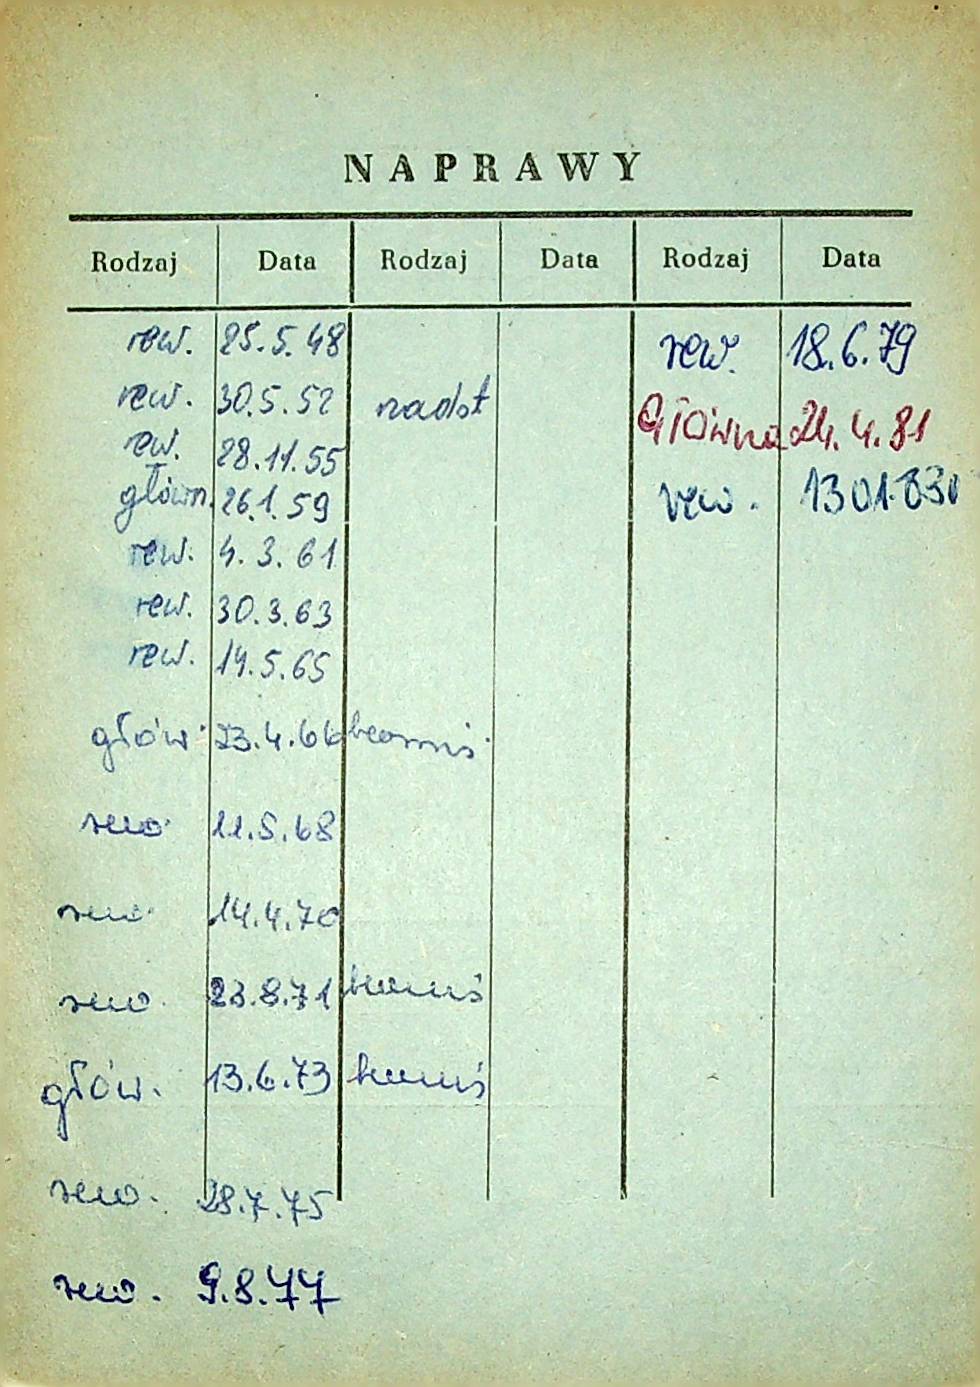 NAPRAWY
Rodzaj Data Rodzaj Data Rodzaj Data
rew. 25.5.48 rew. 18.6.79
rew. 30.5.52 nadst Główna 24.4.81
rew. 28.11.55
główn. 26.1.59 rew. 13 01.83
rew. 4.3.61
rew. 30.3.63
rew. 14.5.65
głów. 23.4.66
rew. 11.5.68
rew. 14.4.70
rew. 23.8.71
głów. 13.6.73
rew. 28.7.75
rew. 9.8.77